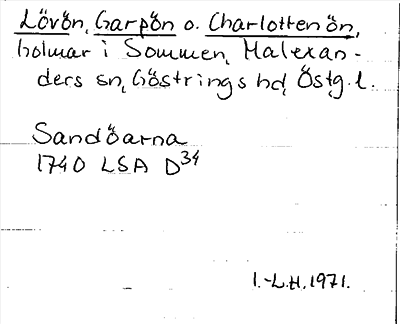 Lövön, Garpön o. Charlotten ön,
holmar i Sommen, Malexan-
ders sn, Göstrings hd, Östg.l.
Sandöarna
1740 LSA D34
I.-L.H. 1971.